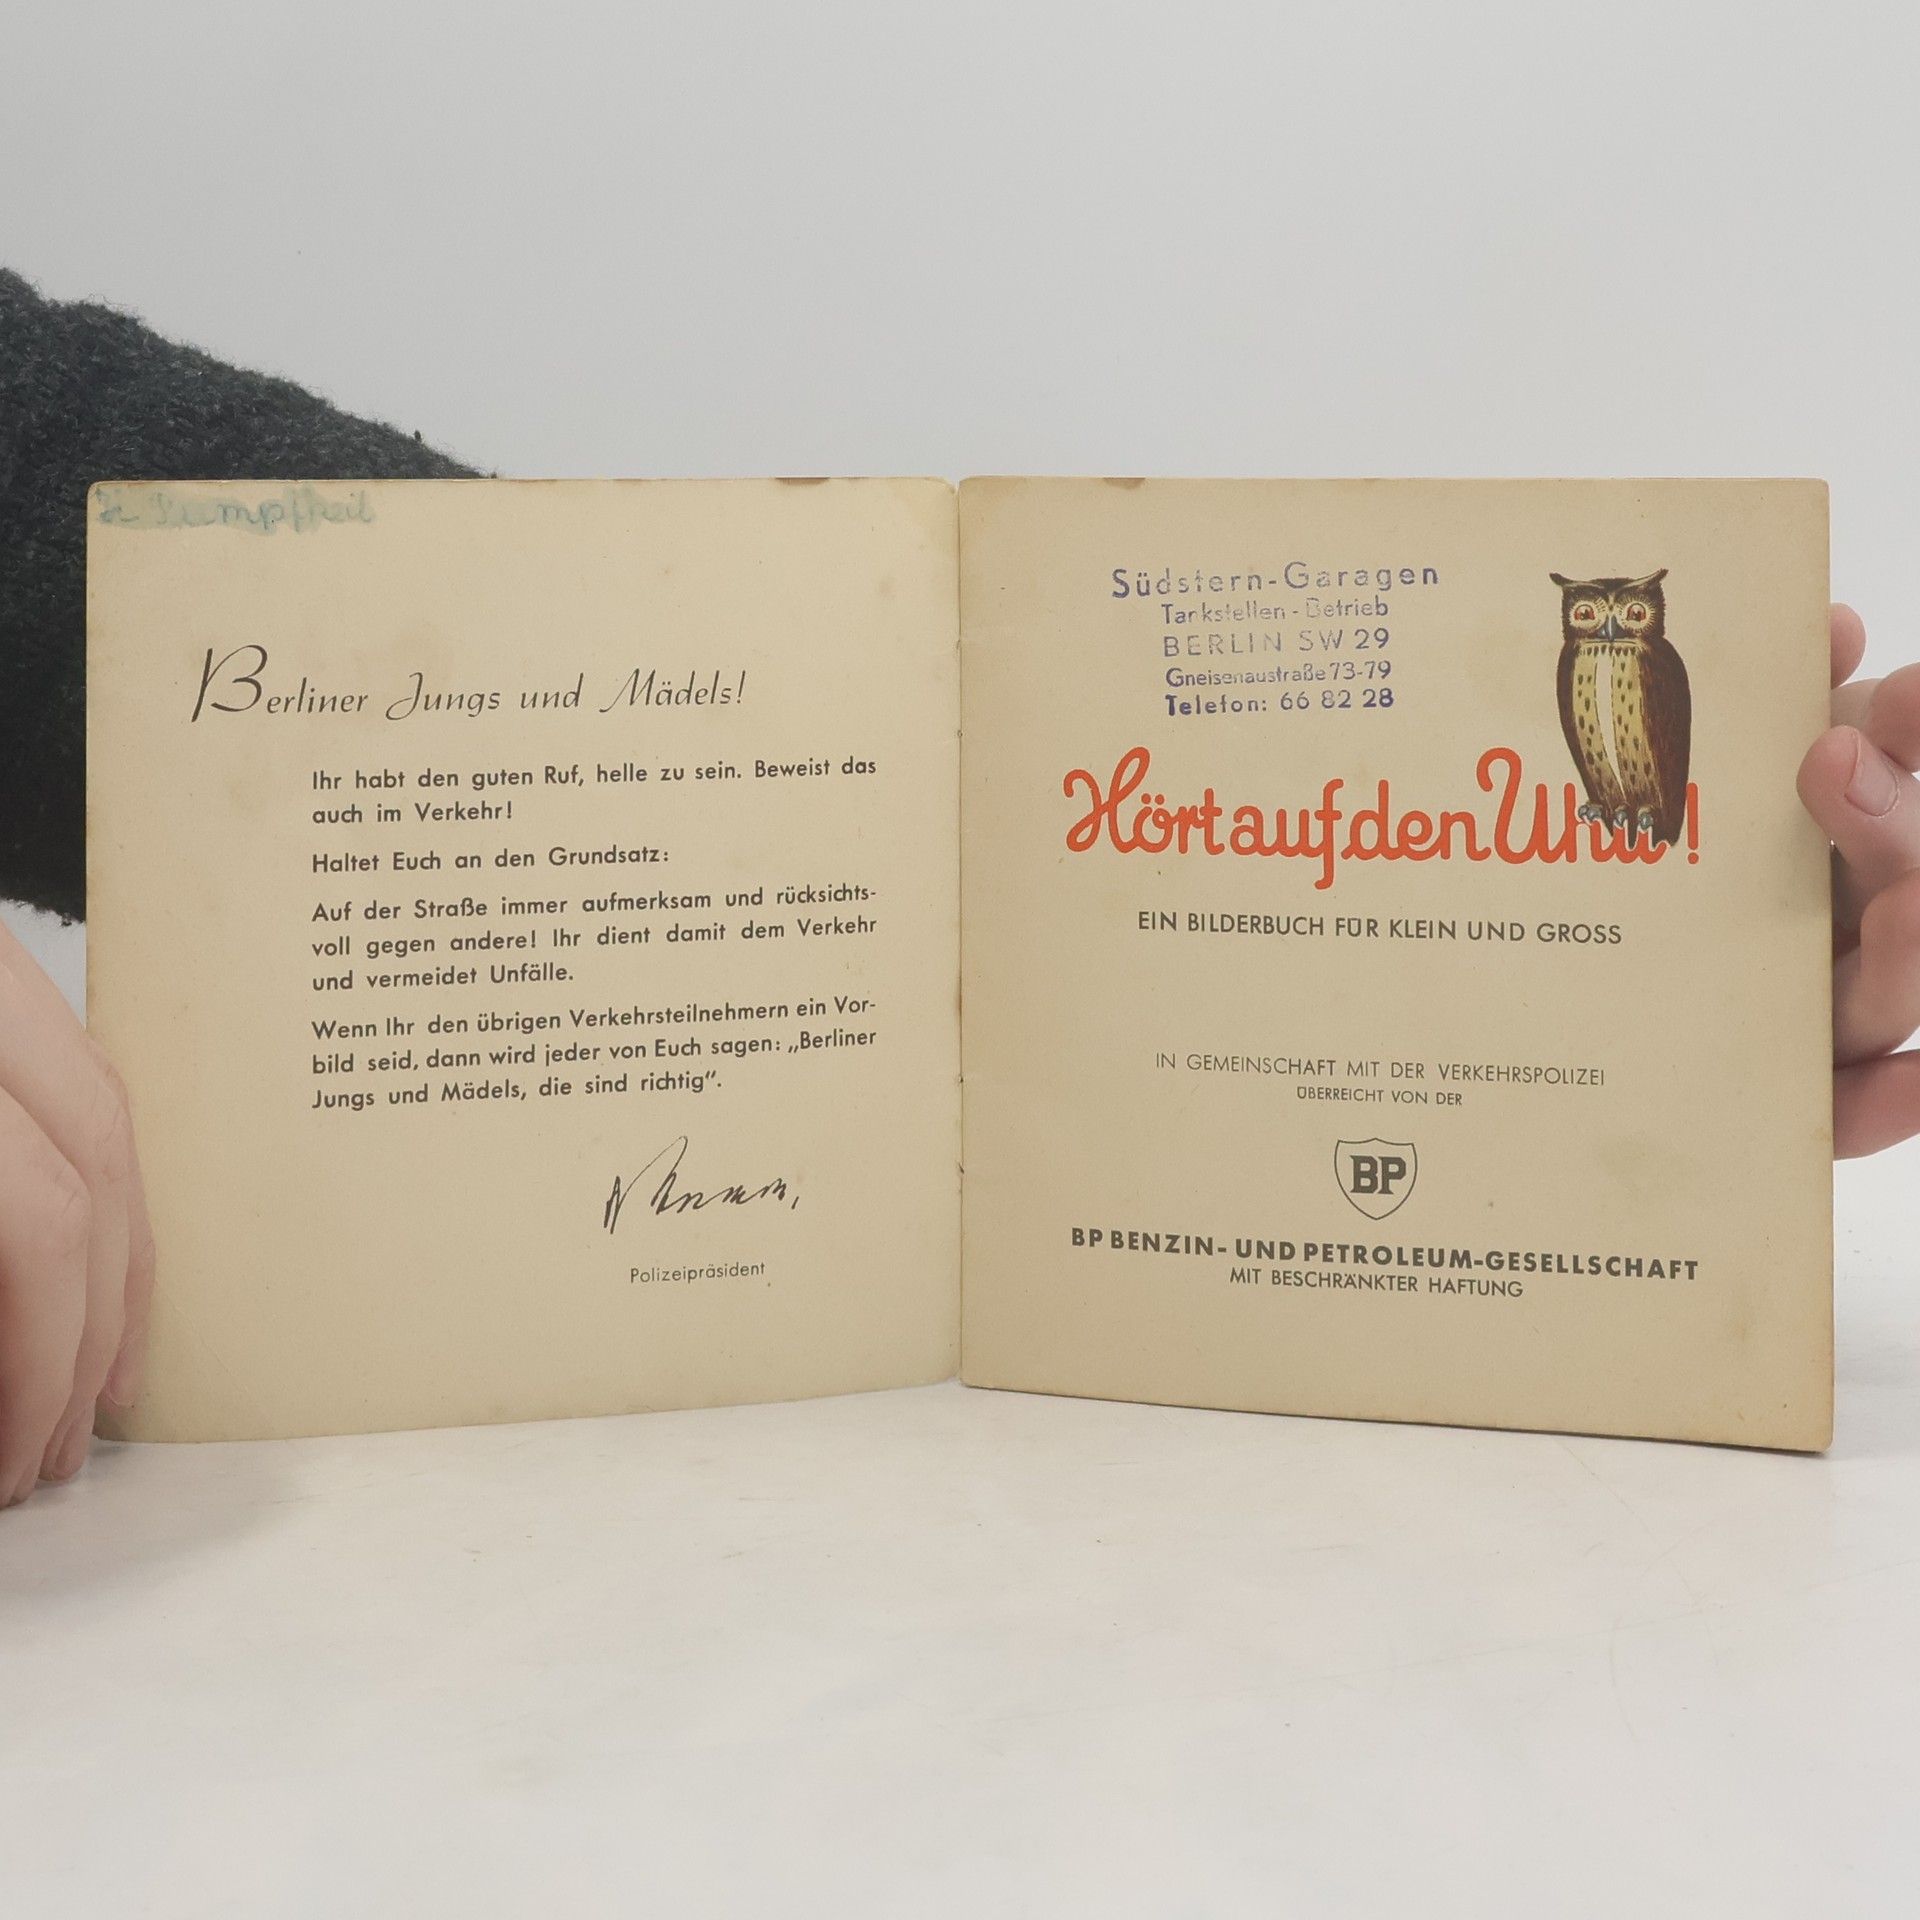 Berliner Jungs und Mädels!
Ihr habt den guten Ruf, helle zu sein. Beweist das
auch im Verkehr!
Haltet Euch an den Grundsatz:
Auf der Straße immer aufmerksam und rücksichts-
voll gegen andere! Ihr dient damit dem Verkehr
und vermeidet Unfälle.
Wenn Ihr den übrigen Verkehrsteilnehmern ein Vor-
bild seid, dann wird jeder von Euch sagen: „Berliner
Jungs und Mädels, die sind richtig“.
Polizeipräsident
Südstern-Garagen
Tankstellen-Betrieb
BERLIN SW 29
Gneisenaustraße 73-79
Telefon: 66 82 28
Hört auf den Uhu!
EIN BILDERBUCH FÜR KLEIN UND GROSS
IN GEMEINSCHAFT MIT DER VERKEHRSPOLIZEI
ÜBERREICHT VON DER
BP
BP BENZIN- UND PETROLEUM-GESELLSCHAFT
MIT BESCHRÄNKTER HAFTUNG